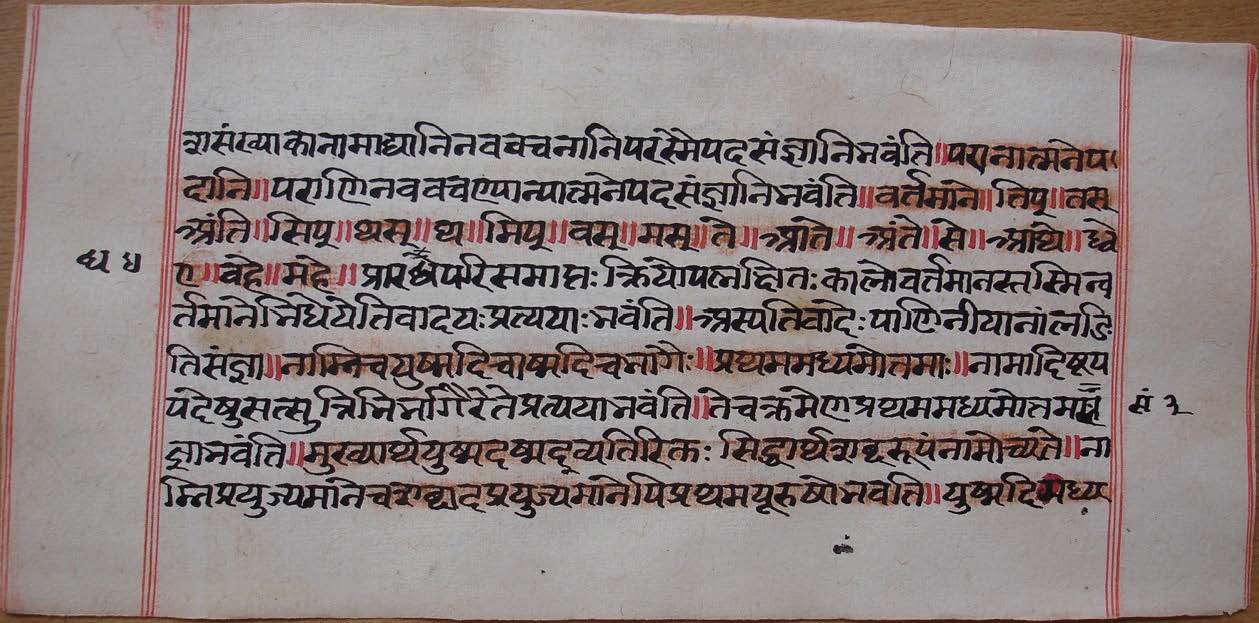 शसंख्याकानामाद्यानिनववचनानिपरस्मैपदसंज्ञानिभवंति॥परानात्मनेप
दानि॥पराणिनववचणान्यात्मनेपदसंज्ञानिभवंति॥वर्तमाने॥तिप्॥तस्
अंति॥सिप्॥थस्॥थ॥मिप्॥वस्॥मस्॥ते॥आते॥अंते॥से॥आथे॥ध्वे
ए॥वहे॥महे॥प्रारब्धोपरिसमाप्तः क्रियोपलक्षितःकालोवर्तमानस्तस्मिन्व
र्तमानेभिधेयेतिवादयःप्रत्ययाःभवंति॥अस्यतिबादेःपाणिनीयानांलडि
तिसंज्ञा॥नाम्निचयुष्मदिचाष्मदिचभागैः॥प्रथममध्यमोत्तमाः॥नामादिषूप
पदेषुसत्सुत्रिभिर्भागैरेतेप्रत्ययाभवंति॥तेचक्रमेणप्रथममध्यमोत्तम
ज्ञाभवंति॥मुख्यार्थयुष्मदष्मद्व्यतिरिक्तः सिद्धार्थशब्दरूपंनामोच्यते॥ना
म्निप्रयुज्यमानेचशब्दादप्रयुज्यमानेपिप्रथमपूरुषोभवति॥युष्मदिमध्य
ध्ध
सं २